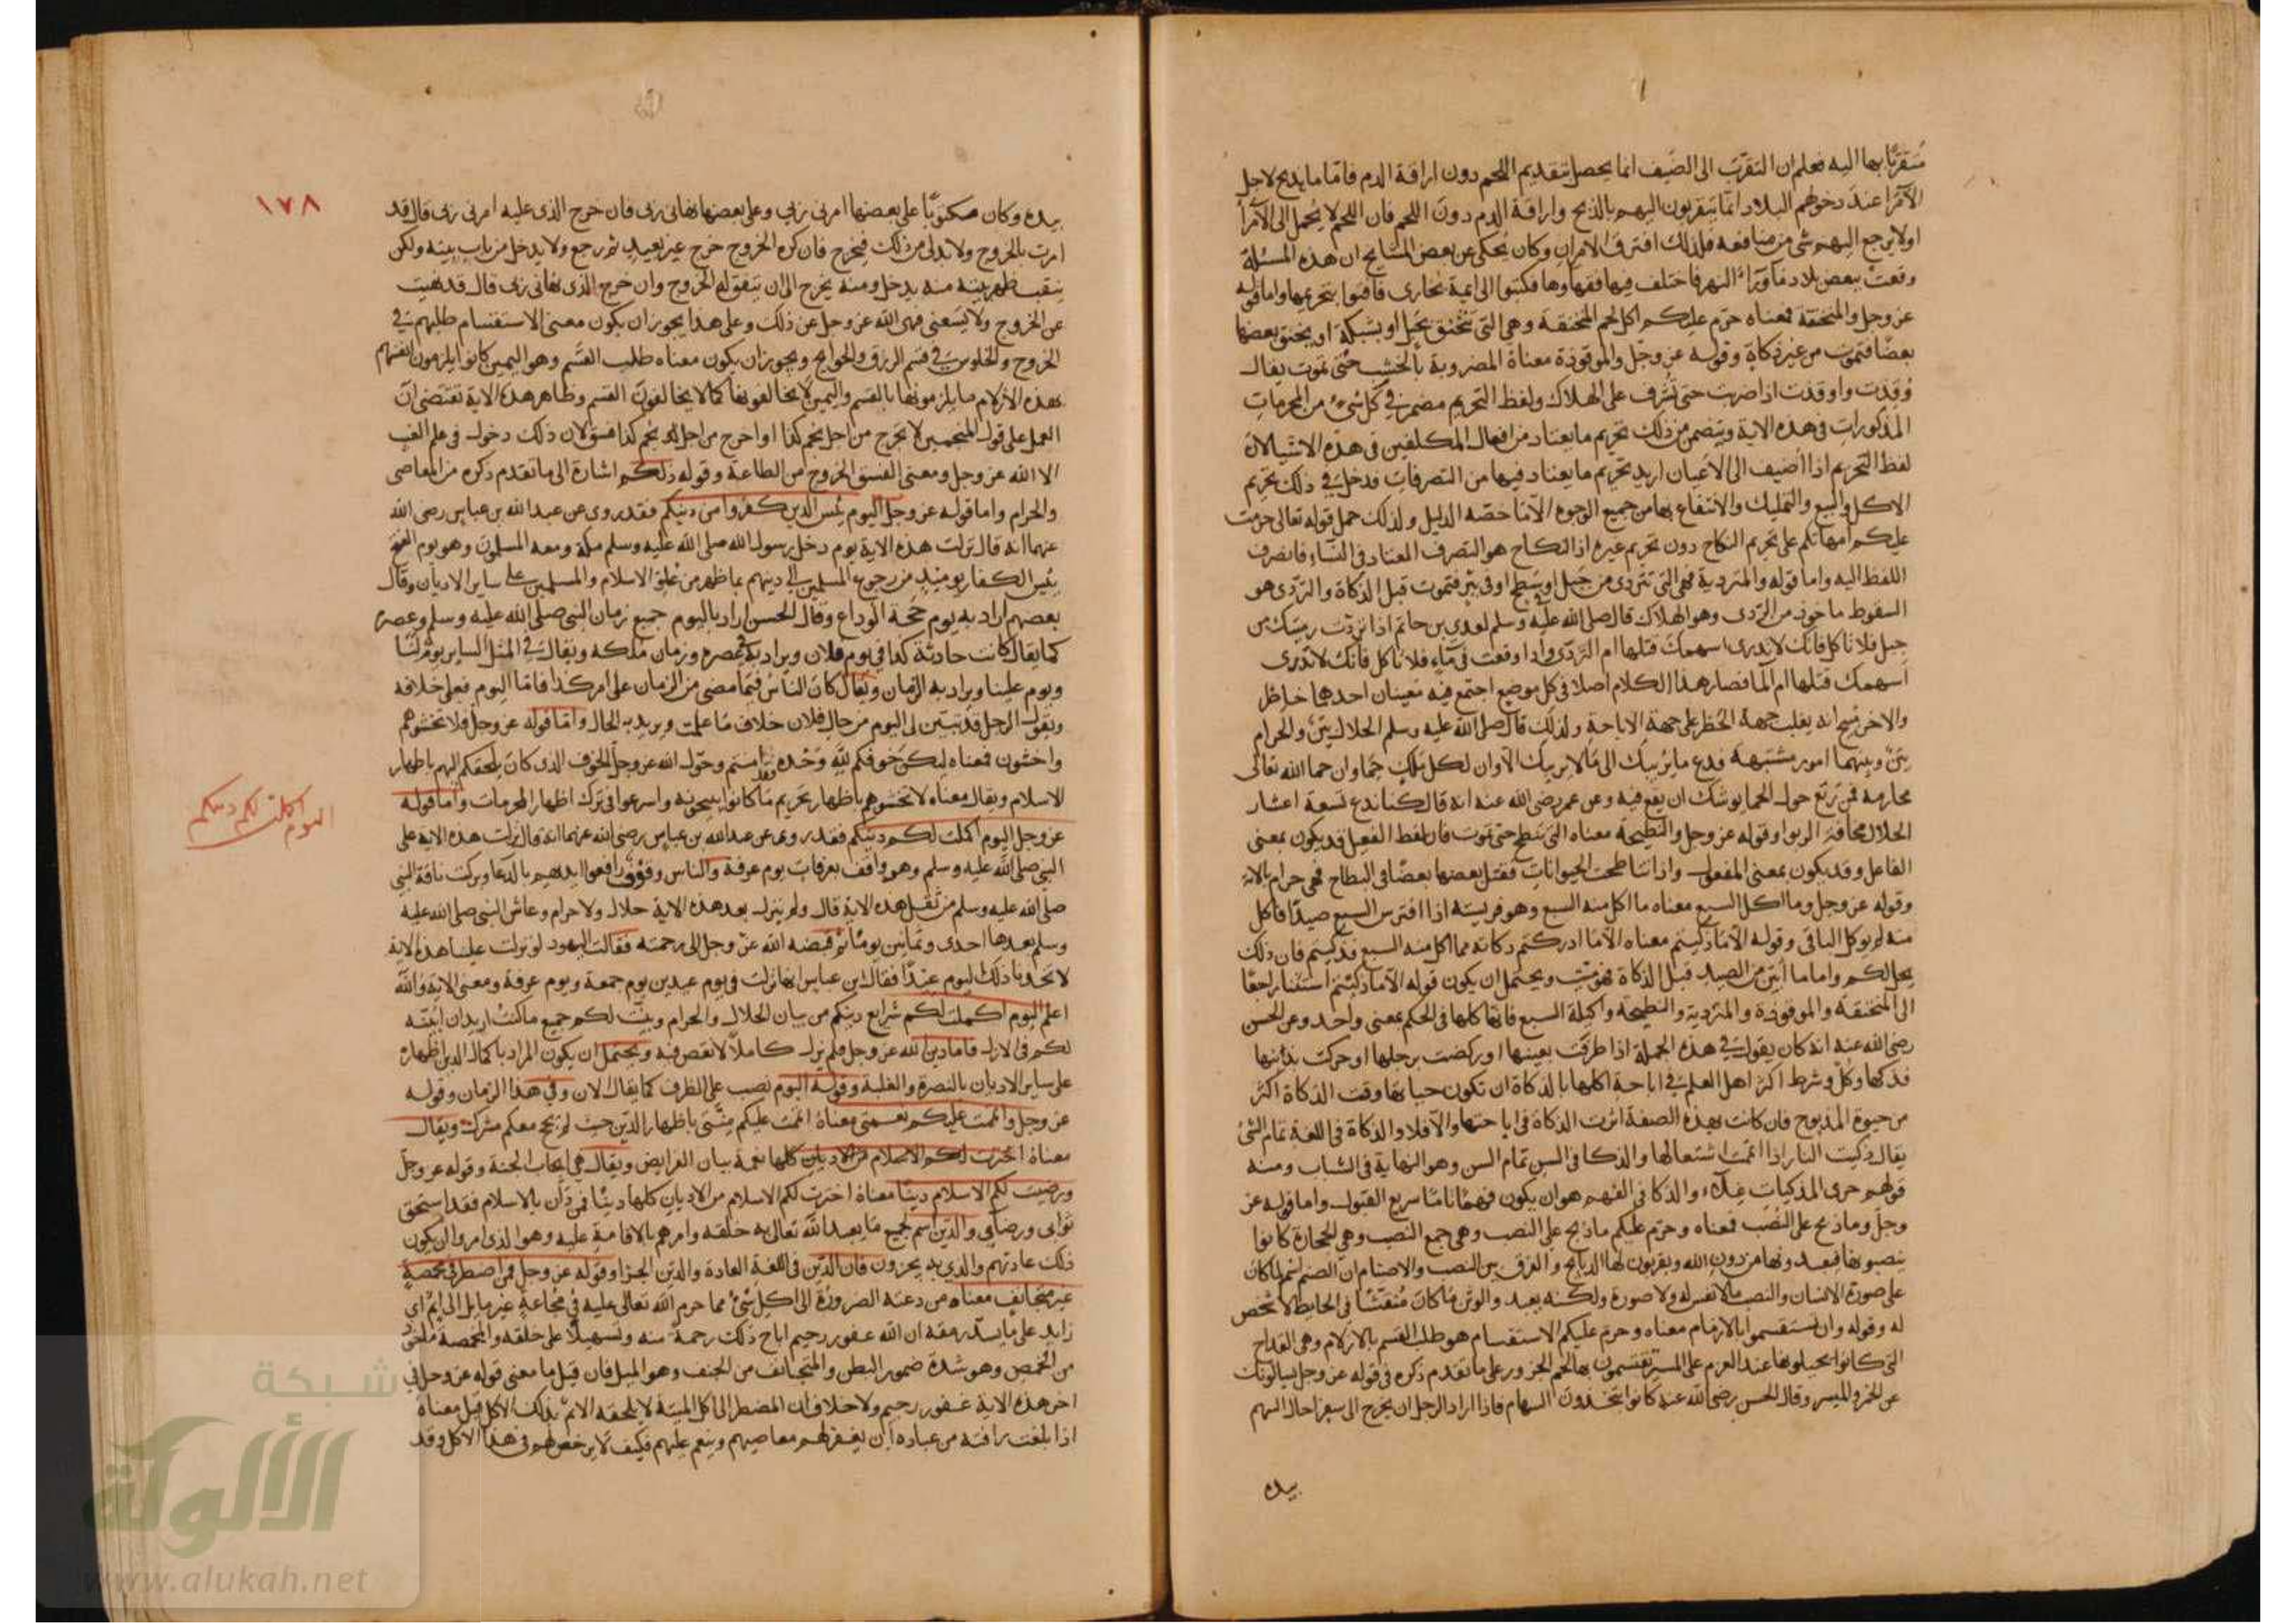 مُتقرّبًا بها اليه فعلم ان التقرّب الى الضّيف انما يحصل بتقديم اللحم دون اراقة الدم فاما ما يذبح لاجل
الامرا عند دخولهم البلاد انما يتقربون اليهم بالذبح واراقة الدم دون اللحم فان اللحم لا يُحمل الى الامرا
او لا يرجع اليهم شى من منافعه فلذلك افترق الامران وكان يُحكى عن بعض المشايخ ان هذه المسئلة
وقعت ببعض بلاد ما وراء النهر فاختلف فيها فقهاوها فكتبوا الى ايمة بخارى فافتوا بتحريمها واما قوله
عز وجل والمنخنقة فمعناه حرّم عليكم اكل لحم المنخنقة وهى التى تختنق بحبل او بشبكة او يخنق بعضها
بعضًا فتموت من غير ذكاة وقوله عز وجلّ والموقوذة معناه المضروبة بالخشب حتى تموت يقال
وُقِذت واوقذت اذا ضربت حتى تُشرف على الهلاك ولفظ التحريم مضمر فى كل شىء من المحرمات
المذكورات فى هذه الاية ويتضمن ذلك تحريم ما يعتاد من افعال المكلفين فى هذه الاشيا لان
لفظ التحريم اذا أضيف الى الاعيان اريد تحريم ما يعتاد فيها من التصرفات فدخل فى ذلك تحريم
الاكل والبيع والتمليك والانتفاع بها من جميع الوجوه الا ما خصّه الدليل ولذلك حمل قوله تعالى حرمت
عليكم امهاتكم على تحريم النكاح دون تحريم غيره اذ النكاح هو التصرف المعتاد فى النساء فانصرف
اللفظ اليه واما قوله والمتردية فهى التى تتردى من جبل او سطح او فى بير فتموت قبل الذكاة والتردى هو
السقوط ماخوذ من الردى وهو الهلاك قال صلى الله عليه وسلم لعدى بن حاتم اذا تردت رميتك من
جبل فلا تاكل فانك لا تدرى اسهمك قتلها ام التردّى واذا وقعت فى ماء فلا تاكل فانك لا تدرى
اسهمك قتلها ام الما فصار هذا الكلام اصلا فى كل موضع اجتمع فيه معنيان احدهما حاظر
والاخر مبيح انه يغلب جهة الحظر على جهة الاباحة ولذلك قال صلى الله عليه وسلم الحلال بيّن والحرام
بيّن وبينهما امور مشتبهة فدع ما يُريبك الى ما لا يريبك الا وان لكل ملك حِمًا وان حما الله تعالى
محارمه فمن رتع حول الحما يوشك ان يقع فيه وعن عمر رضى الله عنه انه قال كنا ندع تسعة اعشار
الحلال مخافة الربوا وقوله عز وجل والنطيحة معناه التى تنطح حتى تموت فان لفظ الفعيل قد يكون بمعنى
الفاعل وقد يكون بمعنى المفعول واذا تناطحت الحيوانات فقتل بعضها بعضًا فى النطاح فهى حرام بالاية
وقوله عز وجل وما اكل السبع معناه ما اكل منه السبع وهو فريسته اذا افترس السبع صيدًا فاكل
منه لم يوكل الباقى وقوله الا ما ذكيتم معناه الا ما ادركتم ذكاته مما اكل منه السبع فذكيتم فان ذلك
يحل لكم واما ما أبين من الصيد قبل الذكاة فهو ميّت ويحتمل ان يكون قوله الا ما ذكيتم استثنا راجعًا
الى المنخنقة والموقوذة والمتردية والنطيحة واكيلة السبع فانها كلها فى الحكم بمعنى واحد وعن الحسن
رضى الله عنه انه كان يقول فى هذه الجملة اذا طرفت بعينها او ركضت برجلها او حركت بذنبها
فذكها وكُل وشرط اكثر اهل العلم فى اباحة اكلها بالذكاة ان تكون حياتها وقت الذكاة اكثر
من حيوة المذبوح فان كانت بهذه الصفة اثرت الذكاة فى اباحتها والا فلا والذكاة فى اللغة تمام الشىء
يقال ذكيت النار اذا اتممت اشتعالها والذكا فى السن تمام السن وهو النهاية فى الشباب ومنه
قولهم جرى المذكيات غلاء والذكا فى الفهم هو ان يكون فهمًا تامًا سريع القبول واما قوله عز
وجل وما ذبح على النصب فمعناه وحرّم عليكم ما ذبح على النصب وهى جمع النصيب وهى الحجارة كانوا
ينصبونها فيعبدونها من دون الله ويقربون لها الذبايح والفرق بين النصب والاصنام ان الصنم اسم لما كان
على صورة الانسان والنصب ما لا نقش له ولا صورة ولكنه يعبد والوثن ما كان مُنقّشا فى الحايط لا شخص
له وقوله وان تستقسموا بالازلام معناه وحرم عليكم الاستقسام هو طلب القسم بالازلام وهى القداح
التى كانوا يجيلونها عند العزم على الميسر يقتسمون بها لحم الجزور على ما تقدم ذكره فى قوله عز وجل يسالونك
عن الخمر والميسر وقال الحسن رضى الله عنه كانوا يتخذون السهام فاذا اراد الرجل ان يخرج الى سفر احال السهم
بيده
١٧٨
بيده وكان مكتوبًا على بعضها امرنى ربى وعلى بعضها نهانى ربى فان خرج الذى عليه امرنى ربى قال قد
امرت بالخروج ولا بد لى من ذلك فيخرج فان كره الخروج خرج غير بعيد ثم رجع ولا يدخل من باب بيته ولكن
ينقب ظهر بيته منه يدخل ومنه يخرج الى ان يتفق له الخروج وان خرج الذى نهانى ربى قال قد نهيت
عن الخروج ولا يسعنى فنهى الله عز وجل عن ذلك وعلى هذا يجوز ان يكون معنى الاستقسام طلبهم فى
الخروج والجلوس فى قسم الرزق والحوايج ويجوز ان يكون معناه طلب القسم وهو اليمين كانوا يلزمون انفسهم
بهذه الازلام ما يلزمونها بالقسم واليمين لا يخالفونها كما لا يخالفون القسم وظاهر هذه الاية تقتضى ان
العمل على قول المنجمين لا تخرج من اجل نجم كذا او اخرج من اجل نجم كذا فسق لان ذلك دخول فى علم الغيب
الا الله عز وجل ومعنى الفسق الخروج من الطاعة وقوله ذلكم اشارة الى ما تقدم ذكره من المعاصى
والحرام واما قوله عز وجل اليوم يئس الذين كفروا من دينكم فقد روى عن عبد الله بن عباس رضى الله
عنهما انه قال نزلت هذه الاية يوم دخل رسول الله صلى الله عليه وسلم مكة ومعه المسلمون وهو يوم الفتح
يئس الكفار يوميذ من رجوع المسلمين الى دينهم بما ظهر من علو الاسلام والمسلمين على ساير الاديان وقال
بعضهم اراد به يوم حجة الوداع وقال الحسن اراد باليوم جميع زمان النبى صلى الله عليه وسلم وعصره
كما يقال كانت حادثة كذا فى يوم فلان ويراد به فى عصره وزمان ملكه ويقال فى المثل الساير يوم لنا
ويوم علينا ويراد به الزمان ويقال كان الناس فيما مضى من الزمان على امر كذا فاما اليوم فعلى خلافه
ويقول الرجل قد تبين لى اليوم من حال فلان خلاف ما علمت ويريد به الحال واما قوله عز وجل فلا تخشوهم
واخشون فمعناه ليكن خوفكم لله وَحْده فقد امنتم وحوّل الله عز وجل الخوف الذى كان يلحقكم اليهم باظهار
الاسلام ويقال معناه لا تخشوهم باظهار تحريم ما كانوا يبيحونه واسرعوا فى ترك اظهار المحرمات واما قوله
عز وجل اليوم اكملت لكم دينكم فقد روى عن عبد الله بن عباس رضى الله عنهما انه قال نزلت هذه الاية على
النبى صلى الله عليه وسلم وهو واقف بعرفات يوم عرفة والناس وقوف رافعوا ايديهم بالدعا وبركت ناقة النبى
صلى الله عليه وسلم من ثقل هذه الاية قال ولم ينزل بعد هذه الاية حلال ولا حرام وعاش النبى صلى الله عليه
وسلم بعدها احدى وثمانين يومًا ثم قبضه الله عز وجل الى رحمته فقالت اليهود لو نزلت علينا هذه الاية
لاتخذنا ذلك اليوم عيدًا فقال ابن عباس انها نزلت فى يوم عيدين يوم جمعة ويوم عرفة ومعنى الاية والله
اعلم اليوم اكملت لكم شرايع دينكم من بيان الحلال والحرام وبينت لكم جميع ما كنت اريد ان ابينه
لكم فى الازل فاما دين الله عز وجل فلم يزل كاملاً لا نقص فيه ويحتمل ان يكون المراد باكمال الدين اظهاره
على ساير الاديان بالنصرة والغلبة وقوله اليوم نصب على الظرف كما يقال الان وفى هذا الزمان وقوله
عز وجل واتممت عليكم نعمتى معناه اتممت عليكم منّتى باظهار الدين حيث لم يحج معكم مشرك ويقال
معناه اخترت لكم الاسلام من الاديان كلها نعمة بيان الفرايض ويقال هى ايجاب الجنة وقوله عز وجل
ورضيت لكم الاسلام دينًا معناه اخترت لكم الاسلام من الاديان كلها دينًا فمن دان بالاسلام فقد استحق
ثوابى ورضاى والدين اسم لجميع ما يعبد الله تعالى به خلقه وامرهم بالاقامة عليه وهو الذى امروا ان يكون
ذلك عادتهم والذى به يجزون فان الدّين فى اللغة العادة والدين الجزا وقوله عز وجل فمن اضطر فى مخمصة
غير متجانف معناه من دعته الضرورة الى اكل شىء مما حرم الله تعالى عليه فى مجاعة غير مايل الى اثم اى
زايد على ما يسد رمقه ان الله غفور رحيم اباح ذلك رحمة منه وتسهيلا على خلقه والمخمصة ماخوذ
من الخمص وهو شدة ضمور البطن والمتجانف من الجنف وهو الميل فان قيل ما معنى قوله عز وجل فى
اخر هذه الاية غفور رحيم ولا خلاف ان المضطر الى اكل الميتة لا يلحقه الاثم بذلك الاكل قيل معناه
اذا بلغت رافته من عباده ان يغفر لهم معاصيهم وينعم عليهم فكيف لا يرخص لهم فى هذا الاكل وقد
اليوم اكملت لكم دينكم
شبكة
الألوكة
www.alukah.net